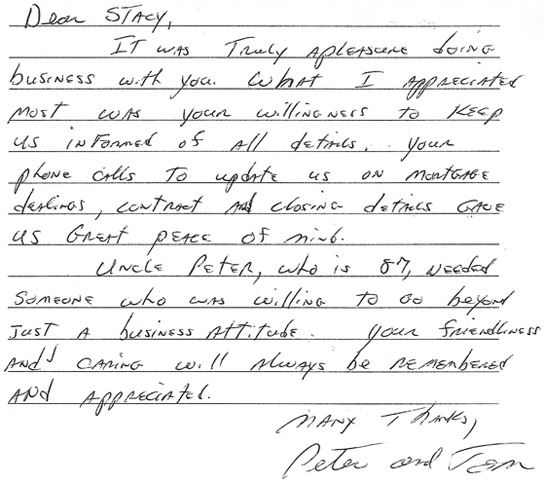 Dear Stacy,
It was truly apleasure doing
business with you. What I appreciated
most was your willingness to keep
us informed of all details. Your
phone calls to update us on mortgage
dealings, contract and closing details gave
us great peace of mind.
Uncle Peter, who is 87, needed
someone who was willing to go beyond
just a business attitude. Your friendliness
and caring will always be remembered
and appreciated.
Many Thanks,
Peter and Tom